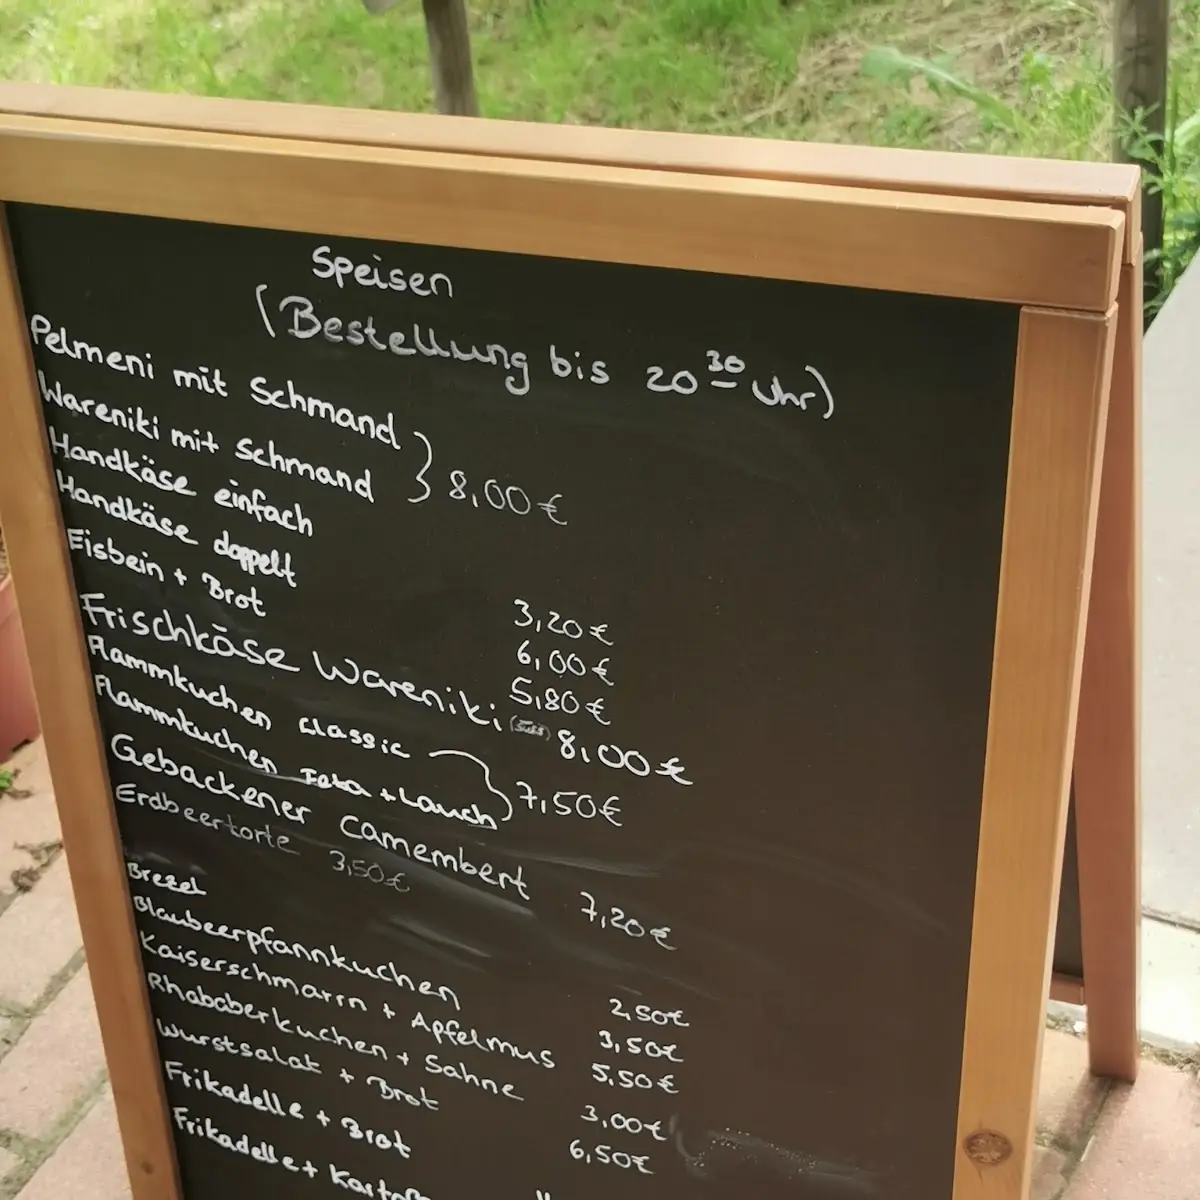 Speisen
(Bestellung bis 20³⁰ Uhr)
Pelmeni mit Schmand
Wareniki mit Schmand } 8,00€
Handkäse einfach 3,20€
Handkäse doppelt 6,00€
Eisbein + Brot 5,80€
Frischkäse Wareniki (süß) 8,00€
Flammkuchen classic
Flammkuchen Feta + Lauch } 7,50€
Gebackener Camembert 7,20€
Erdbeertorte 3,50€
Brezel 2,50€
Blaubeerpfannkuchen 3,50€
Kaiserschmarrn + Apfelmus 5,50€
Rhababerkuchen + Sahne 3,00€
Wurstsalat + Brot 6,50€
Frikadelle + Brot
Frikadelle +